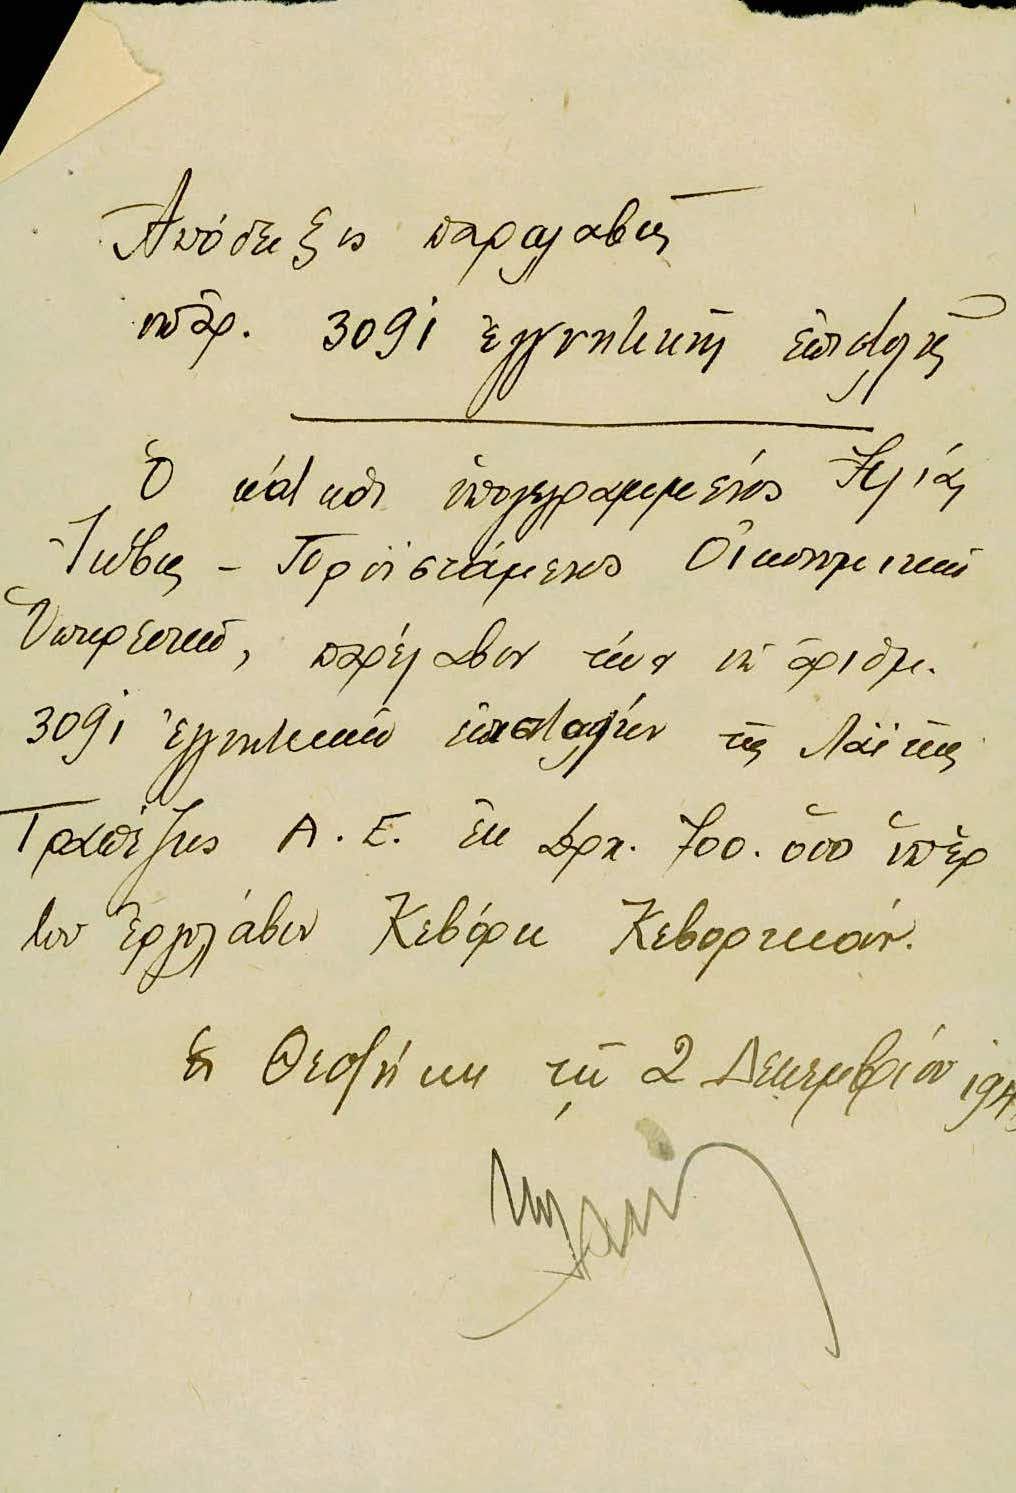 Ἀπόδειξις παραλαβῆς
ὑπ' ἀρ. 3091 ἐγγυητικῆς ἐπιστολῆς
Ὁ κάτωθι ὑπογεγραμμένος Ἠλίας
– Προϊστάμενος Οἰκονομικοῦ
Ὑπηρεσιῶν, παρέλαβον τὴν ὑπ' ἀριθμ.
3091 ἐγγυητικὴν ἐπιστολὴν τῆς Λαϊκῆς
Τραπέζης Α.Ε. ἐκ Δρχ. 700.000 ὑπὲρ
τοῦ ἐργολάβου Κεβὸρκ Κεβορκιάν.
Ἐν Θεσ/νίκῃ τῇ 2 Δεκεμβρίου 194